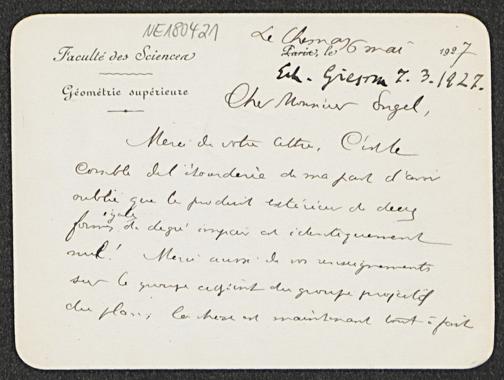 NE180421
Faculté des Sciences
Géométrie supérieure
Le Chesnay 6 mai 1927
Paris, le
Eh. Giessen 7. 3. 1927.
Cher Monsieur Engel,
Merci de votre lettre. C'est le
comble de l'étourderie de ma part d'avoir
oublié que le produit extérieur de deux
formes égales de degré impair est identiquement
nul! Merci aussi de vos renseignements
sur le groupe adjoint du groupe projectif
du plan; la chose est maintenant tout à fait